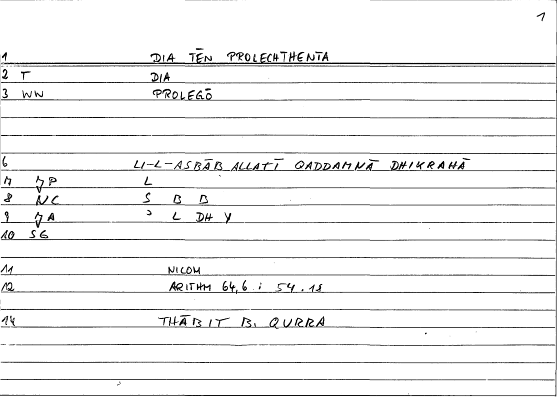 1
1 DIA TĒN PROLECHTHENTA
2 T DIA
3 WN PROLEGŌ
6 LI-L-ASBĀB ALLATĪ QADDAMNĀ DHIKRAHĀ
7 JP L
8 NC S B B
9 JA ʾ L DH Y
10 SG
11 NICOM
12 ARITHM 64,6 : 54.18
14 THĀBIT B. QURRA